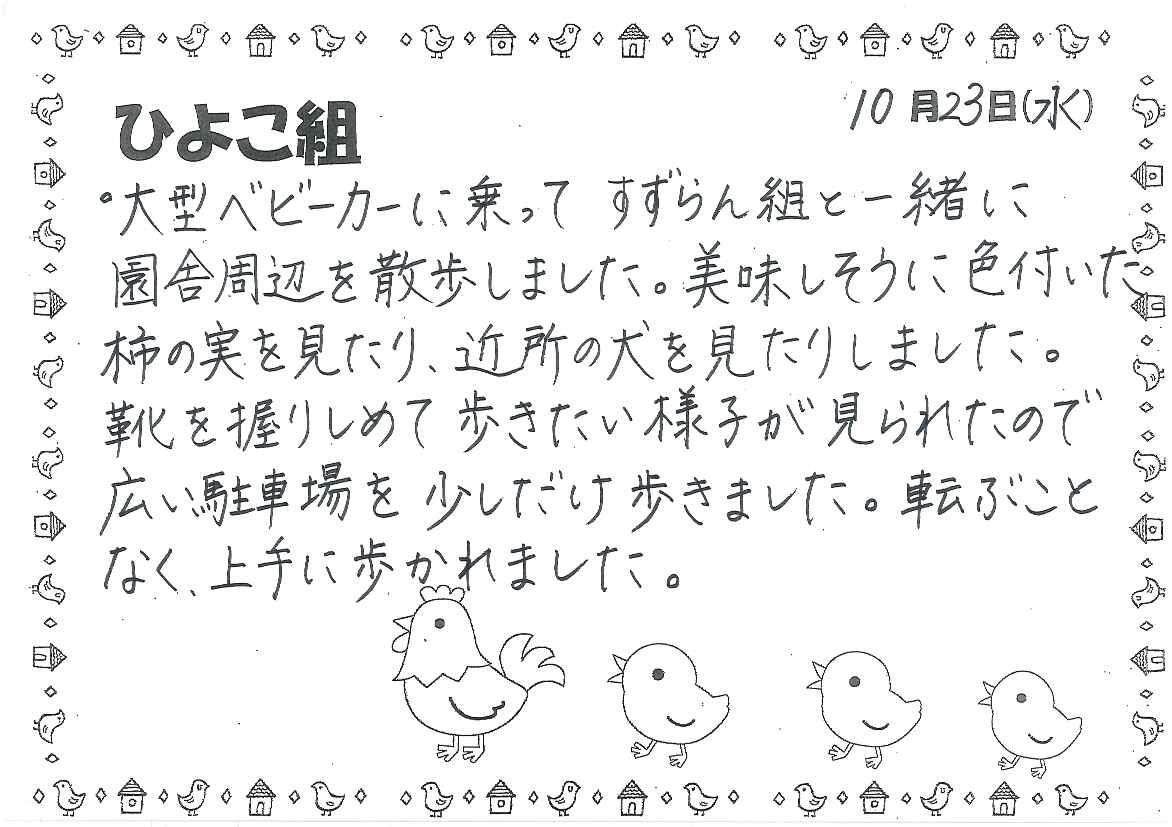 ひよこ組
10月23日(水)
°大型ベビーカーに乗って すずらん組と一緒に
園舎周辺を散歩しました。美味しそうに色付いた
柿の実を見たり、近所の犬を見たりしました。
靴を握りしめて歩きたい様子が見られたので
広い駐車場を少しだけ歩きました。転ぶこと
なく、上手に歩かれました。